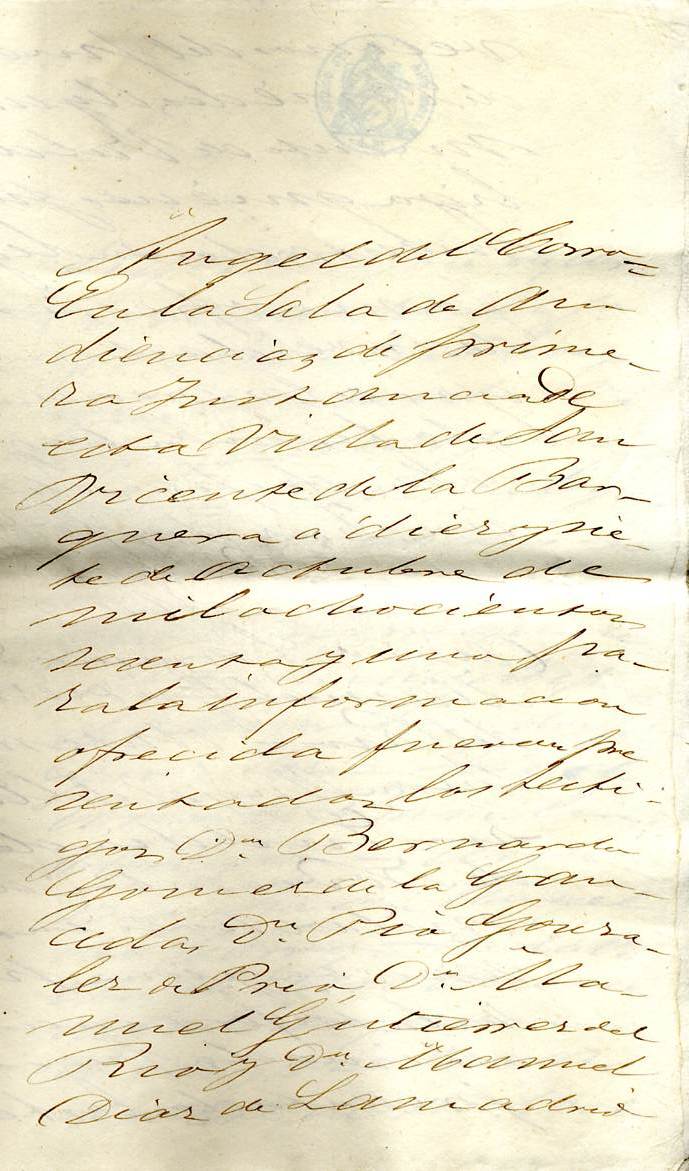 Angel del Corro=
En la Sala de Au
diencia, de prime-
ra Instancia De
esta Villa de San
Vicente de la Bar-
quera a diez y sie-
te de Octubre de
mil ochocientos
sesenta y uno pa-
ra la informacion
ofrecida fueron pre
sentados los testi-
gos, Dn Bernardo
Gomez de la Gran-
, Dn Pio Gonza-
lez de Prio, Dn Ma-
nuel Gutierrez del
Rio y Dn Manuel
Diaz de Lamadrid